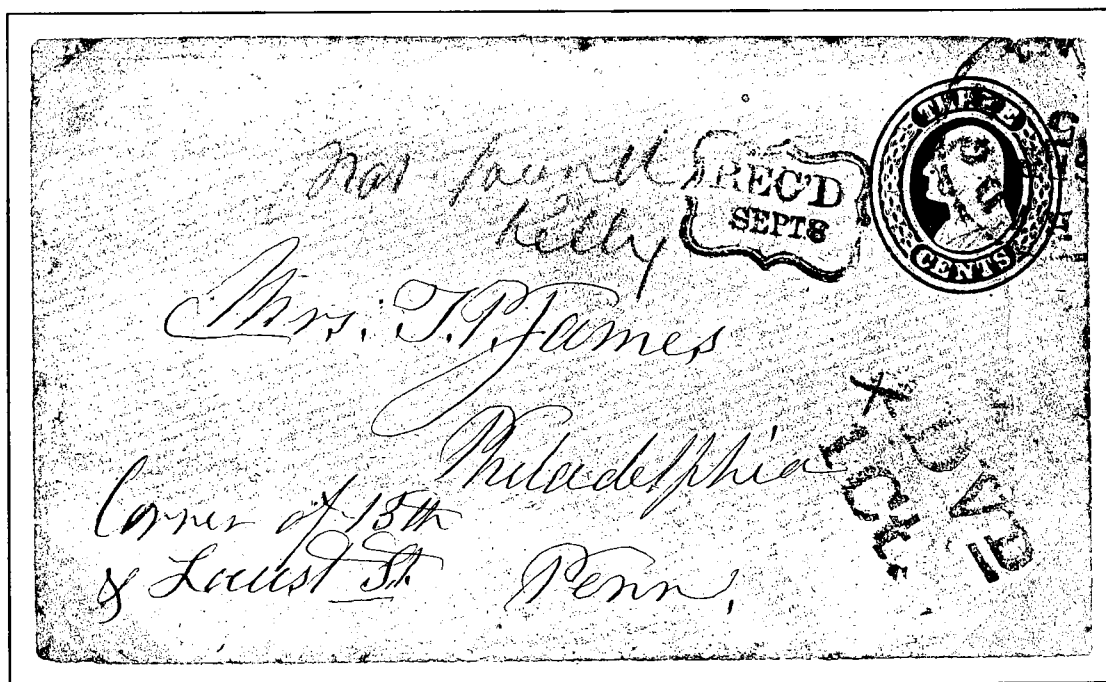 Not found
Kelly
REC'D
SEPT 8
THREE
CENTS
Mrs. T. P. James
Philadelphia
Corner of 13th
& Locust St.
Penn,
ADV'D
1 Ct.